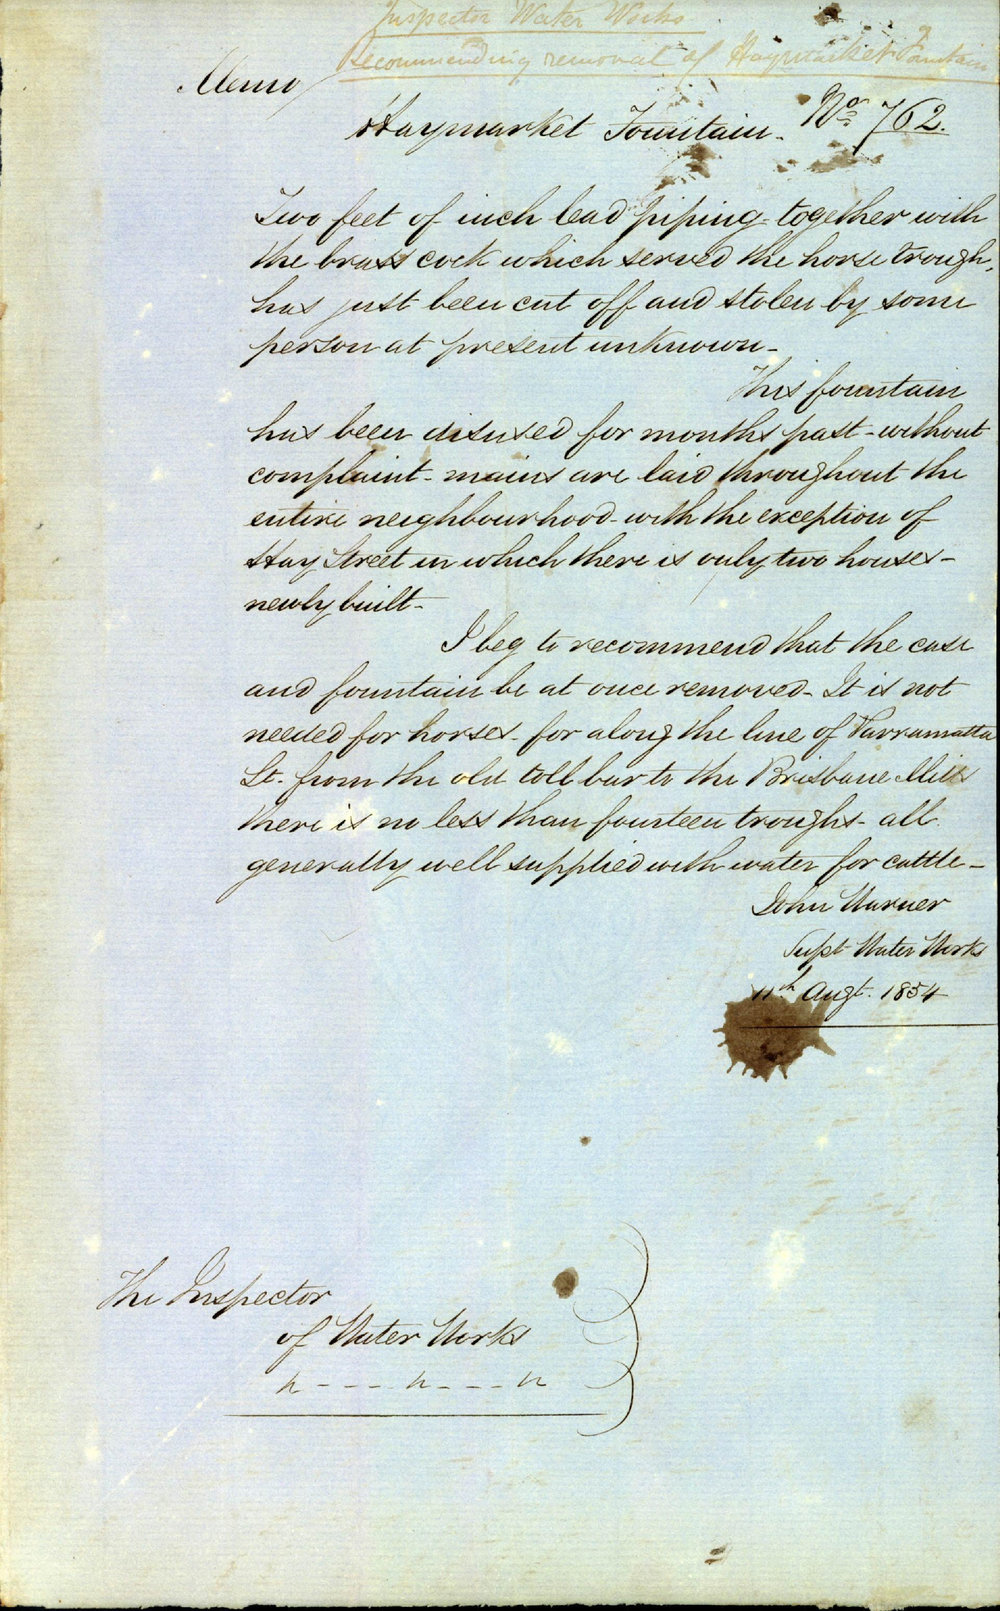 Inspector Water Works
Recommending removal of Haymarket Fountain
Memo
Haymarket Fountain. No 762.
Two feet of inch lead piping - together with
the brass cock which served the horse trough,
has just been cut off and stolen by some
person at present unknown -
This fountain
has been disused for months past - without
complaint - mains are laid throughout the
entire neighbourhood - with the exception of
Hay Street in which there is only two houses -
newly built -
I beg to recommend that the case
and fountain be at once removed - It is not
needed for horses - for along the line of Parramatta
St. from the old toll bar to the Brisbane Mills
there is no less than fourteen troughs - all
generally well supplied with water for cattle -
John Warner
Supt Water Works
11th Augt. 1854
The Inspector
of Water Works
" - - - " - - - "